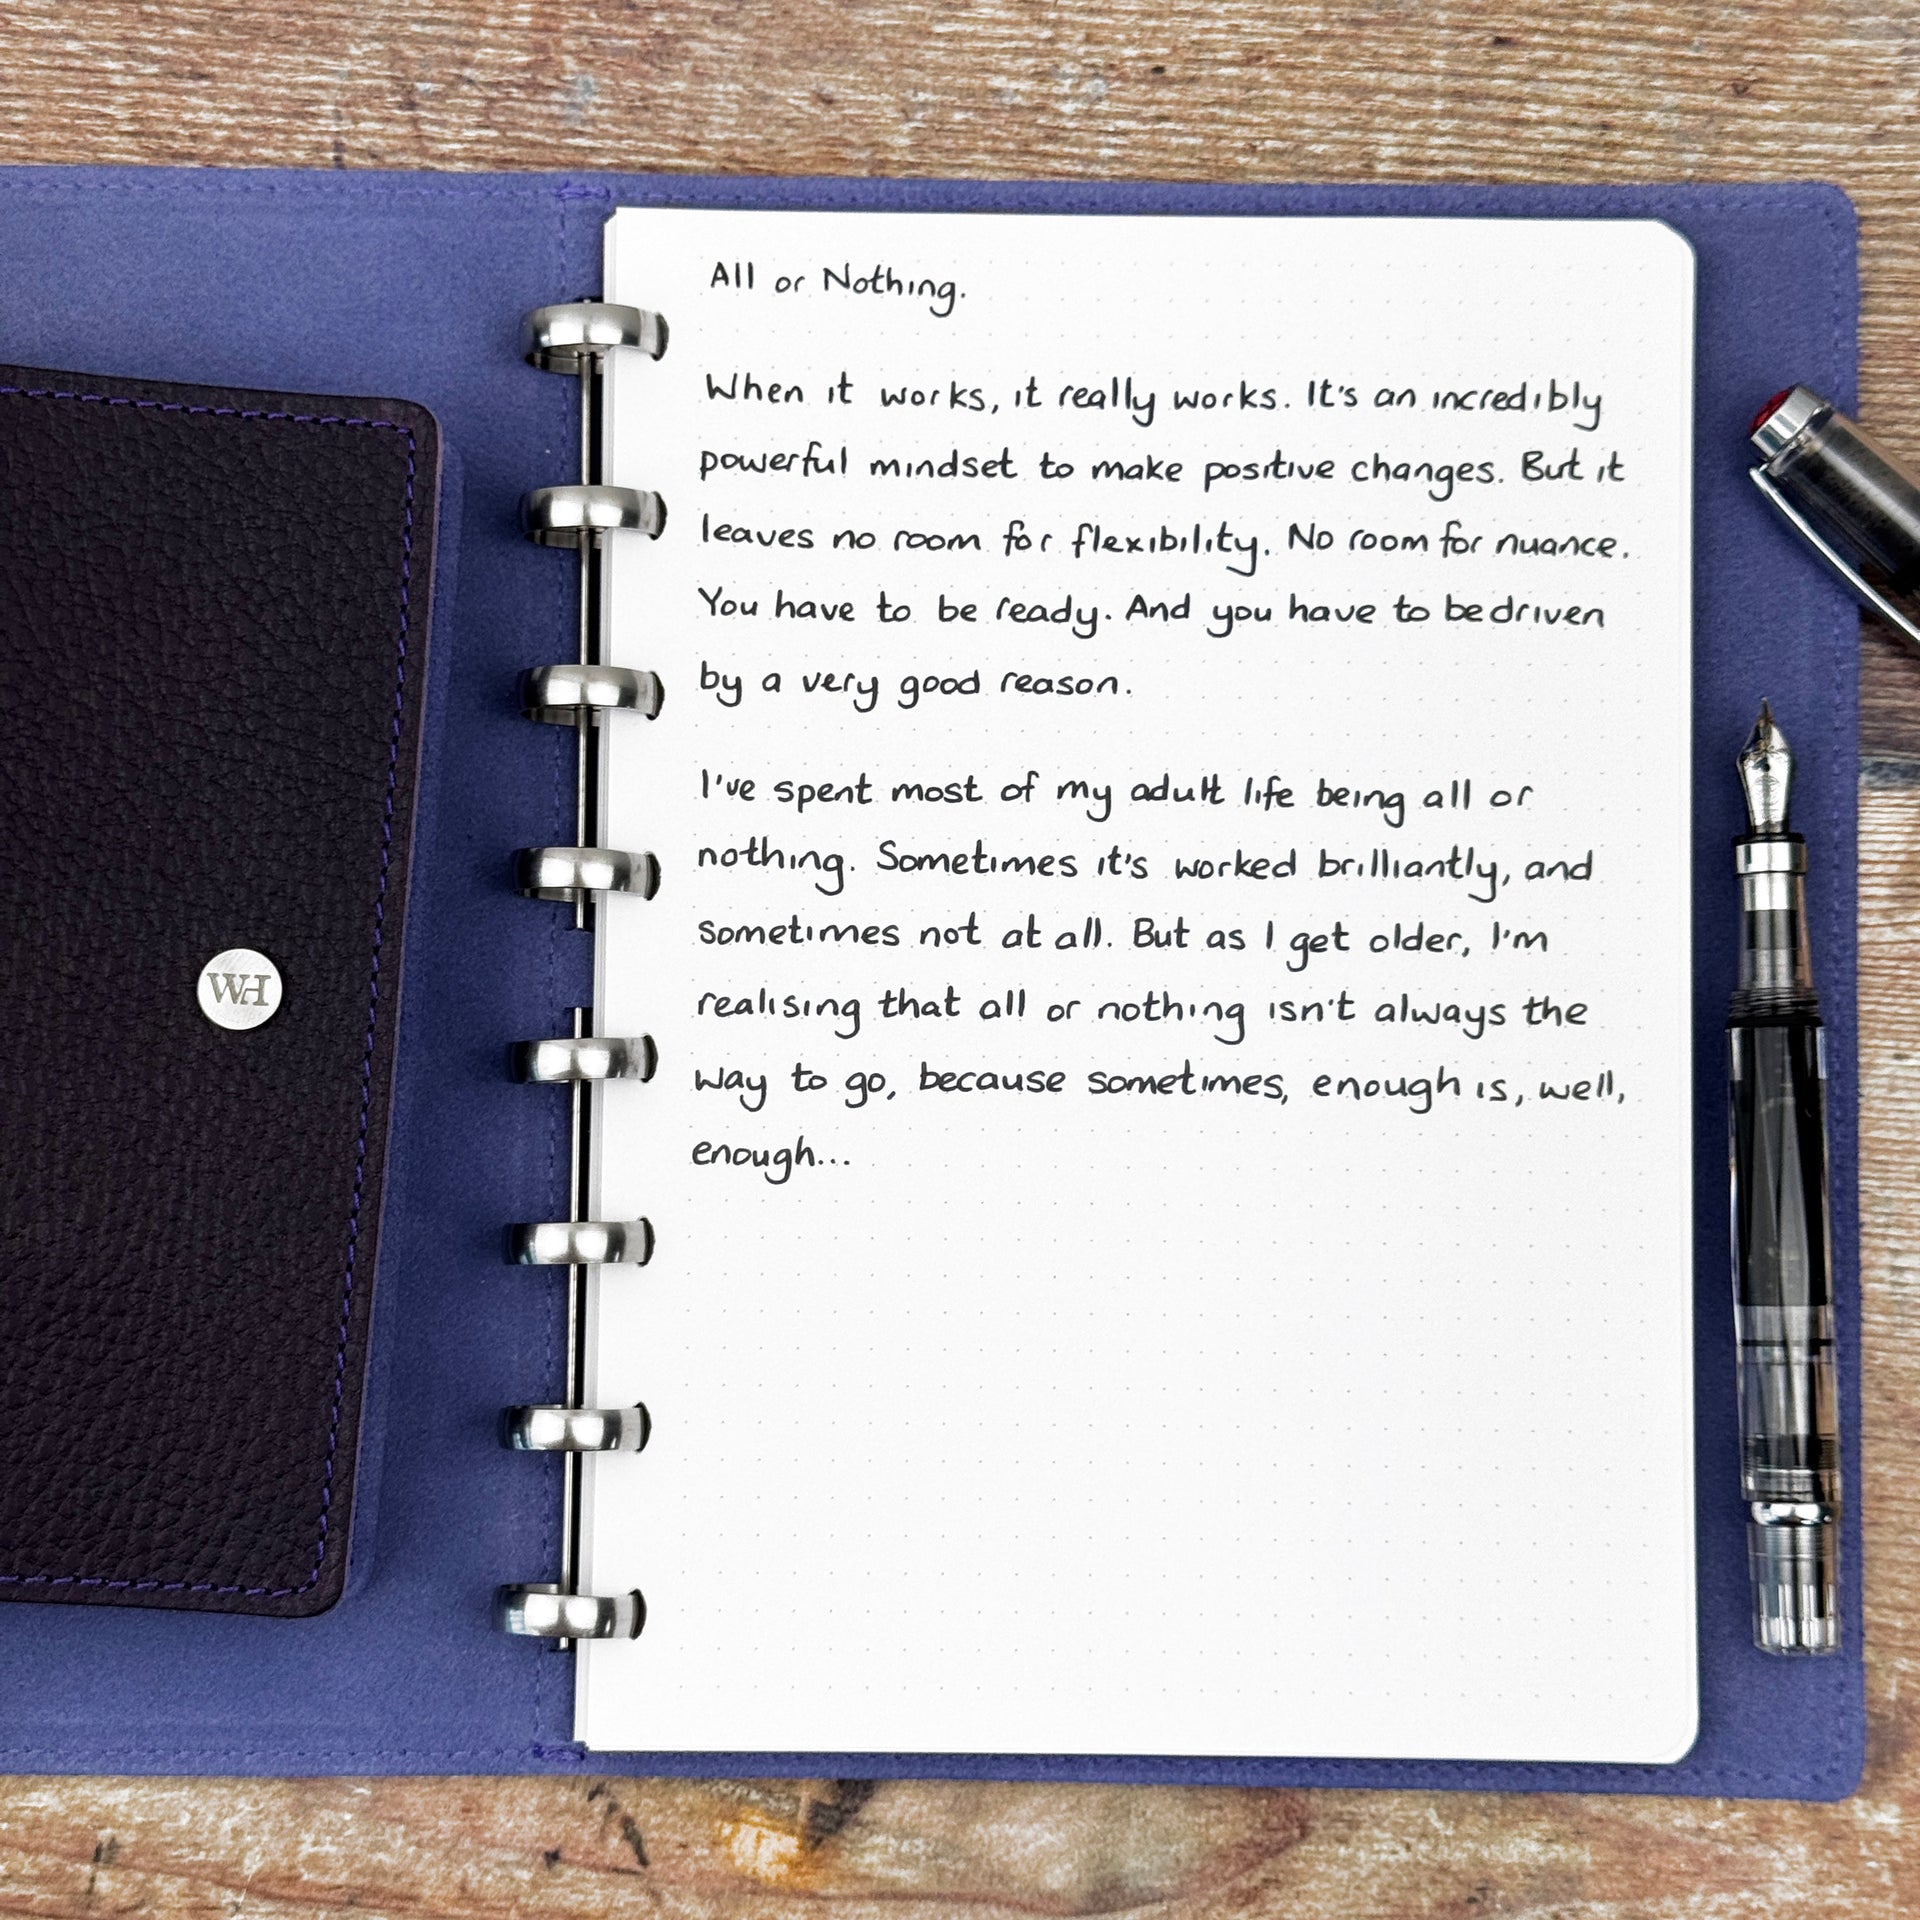 All or Nothing.
When it works, it really works. It's an incredibly
powerful mindset to make positive changes. But it
leaves no room for flexibility. No room for nuance.
You have to be ready. And you have to be driven
by a very good reason.
I've spent most of my adult life being all or
nothing. Sometimes it's worked brilliantly, and
sometimes not at all. But as I get older, I'm
realising that all or nothing isn't always the
way to go, because sometimes, enough is, well,
enough...
WH